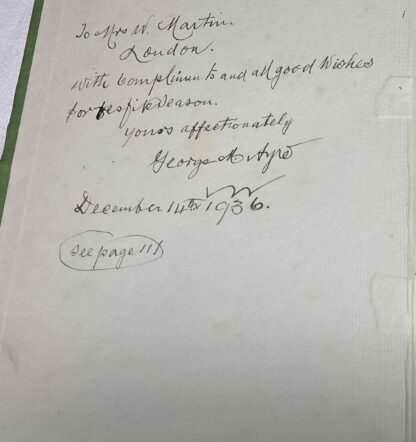 To Mrs W. Martin.
London.
with compliments and all good Wishes
for Season.
yours affectionately
George M. Ayre
December 14th 1936.
see page 111